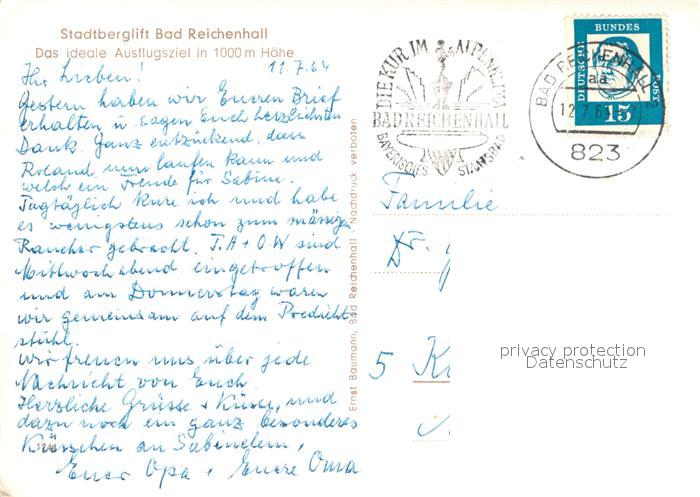 Stadtberglift Bad Reichenhall
Das ideale Ausflugsziel in 1000 m Höhe
Ihr Lieben! 11.7.64
Gestern haben wir Eueren Brief
erhalten u sagen Euch herzlichsten
Dank. Ganz entzückend, dass
Roland nun laufen kann und
welch ein Freude für Sabine.
Tagtäglich kure ich und habe
es wenigstens schon zum mässigen
Raucher gebracht. T.A + O.W sind
Mittwoch abend eingetroffen
und am Donnerstag waren
wir gemeinsam auf dem Predicht-
stuhl.
Wir freuen uns über jede
Nachricht von Euch.
Herzliche Grüsse + Küsse, und
dazu noch ein ganz besonderes
Küsschen an Sabinchen,
Euer Opa + Euere Oma
Ernst Baumann, Bad Reichenhall · Nachdruck verboten
DIE KUR IM ALPENKLIMA
BAD REICHENHALL
BAYERISCHES STAATSBAD
BAD REICHENHALL 2
aa
12.7.6
823
DEUTSCHE BUNDESPOST
15
Familie
Dr.
5 K
privacy protection
Datenschutz